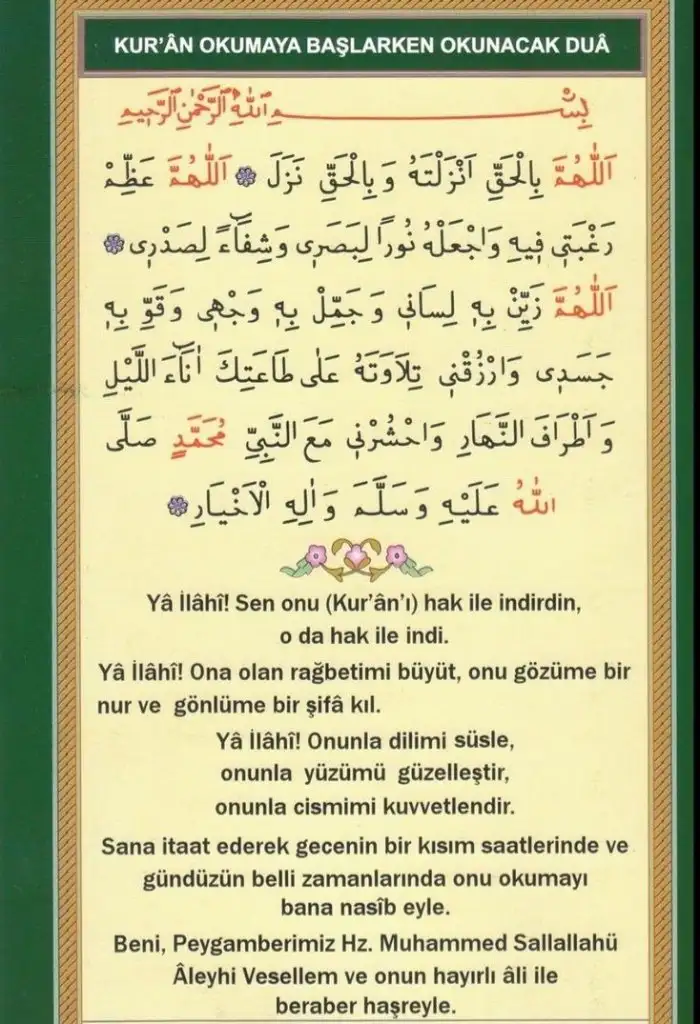 KUR’ÂN OKUMAYA BAŞLARKEN OKUNACAK DUÂ
بِسْــــــمِ اللّٰهِ الرَّحْمٰنِ الرَّحِيمِ
اَللّٰهُمَّ بِالْحَقِّ اَنْزَلْتَهُ وَبِالْحَقِّ نَزَلَ اَللّٰهُمَّ عَظِّمْ
رَغْبَتِى فِيهِ وَاجْعَلْهُ نُورًا لِبَصَرِى وَشِفَٓاءً لِصَدْرِى
اَللّٰهُمَّ زَيِّنْ بِهِ لِسَانِى وَجَمِّلْ بِهِ وَجْهِى وَقَوِّ بِهِ
جَسَدِى وَارْزُقْنِى تِلَاوَتَهُ عَلٰى طَاعَتِكَ اٰنَٓاءَ اللَّيْلِ
وَاَطْرَافَ النَّهَارِ وَاحْشُرْنِى مَعَ النَّبِيِّ مُحَمَّدٍ صَلَّى
اللّٰهُ عَلَيْهِ وَسَلَّمَ وَاٰلِهِ الْاَخْيَارِ
Yâ İlâhî! Sen onu (Kur’ân’ı) hak ile indirdin,
o da hak ile indi.
Yâ İlâhî! Ona olan rağbetimi büyüt, onu gözüme bir
nur ve gönlüme bir şifâ kıl.
Yâ İlâhî! Onunla dilimi süsle,
onunla yüzümü güzelleştir,
onunla cismimi kuvvetlendir.
Sana itaat ederek gecenin bir kısım saatlerinde ve
gündüzün belli zamanlarında onu okumayı
bana nasîb eyle.
Beni, Peygamberimiz Hz. Muhammed Sallallahü
Âleyhi Vesellem ve onun hayırlı âli ile
beraber haşreyle.